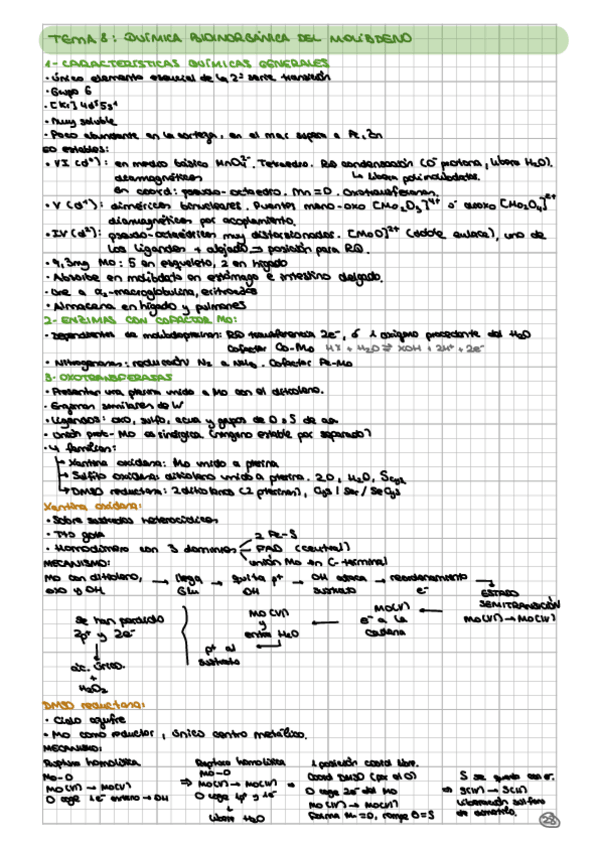 TEMA 8: QUÍMICA BIOINORGÁNICA DEL MOLIBDENO
1- CARACTERÍSTICAS QUÍMICAS GENERALES
· Único elemento esencial de la 2ª serie transición
· Grupo 6
· [Kr] 4d⁵5s¹
· Muy soluble
· Poco abundante en la corteza, en el mar supera a Fe, Zn
EO estables:
· VI (d⁰): en medio básico MnO₄²⁻. Tetraedro. RQ condensación (O²⁻ protona, libera H₂O).
diamagnéticos
↳ Libera polimolibdatos.
en coord: pseudo-octaedro. Mn=O. Oxotransferasas.
· V (d¹): diméricos binucleares. Puentes mono-oxo [Mo₂O₃]⁴⁺ ó dioxo [Mo₂O₄]²⁺
diamagnéticos por acoplamiento.
· IV (d²): pseudo-octaédricos muy distorsionados. [MoO]²⁺ (doble enlace), uno de
los ligandos + alejado → posición para RQ.
· 9,3mg Mo: 5 en esqueleto, 2 en hígado
· Absorbe en molibdato en estómago e intestino delgado.
· Une a α₂-macroglobulina, eritrocitos
· Almacena en hígado y pulmones
2- ENZIMAS CON COFACTOR Mo:
· Dependientes de molibdopterinas: RQ transferencia 2e⁻, ó 1 oxígeno procedente del H₂O
Cofactor Co-Mo HX + H₂O ⇌ XOH + 2H⁺ + 2e⁻
· Nitrogenasas: reducción N₂ a NH₃. Cofactor Fe-Mo
3- OXOTRANSFERASAS
· Presentan una pterina unida a Mo con el ditioleno.
· Enzimas similares de W
· Ligandos: oxo, sulfo, agua y grupos de O o S de aa.
· Unión prot-Mo es sinérgica (ninguno estable por separado)
· 4 familias:
→ Xantina oxidasa: Mo unido a pterina
→ Sulfito oxidasa: ditioleno unido a pterina. 2O, H₂O, S
→ DMSO reductasa: 2 ditiolenos (2 pterinas), Cys / Ser / SeCys
Xantina oxidasa:
· Sobre sustratos heterocíclicos
· Tto gota
· Homodímero con 3 dominios
2 Fe-S
FAD (central)
unión Mo en C-terminal
MECANISMO:
Mo con ditioleno, oxo y OH. → Llega Glu → Quita p⁺ OH → OH ataca sustrato → reordenamiento e⁻
ESTADO
SEMITRANSICIÓN
Mo(VI) → Mo(IV)
Mo(V)
e⁻ a la
cadena
Mo(VI)
y
entra H₂O
p⁺ al
sustrato
se han perdido
2p⁺ y 2e⁻
ác. úrico.
+
H₂O₂
DMSO reductasa:
· Ciclo azufre
· Mo como reductor, único centro metálico.
MECANISMO:
Ruptura homolítica
Mo-O
Mo(VI) → Mo(V)
O coge 1e⁻ entero → OH
Ruptura homolítica
Mo-O
⇒ Mo(V) → Mo(IV) ⇒
O coge 1p⁺ y 1e⁻
↓
Libera H₂O
1 posición coord libre.
Coord DMSO (por el O)
O coge 2e⁻ del Mo
Mo(IV) → Mo(VI)
Forma M=O, rompe O=S
S se queda con e⁻.
⇒ S(IV) → S(II)
Liberación sulfuro
de dimetilo.
28